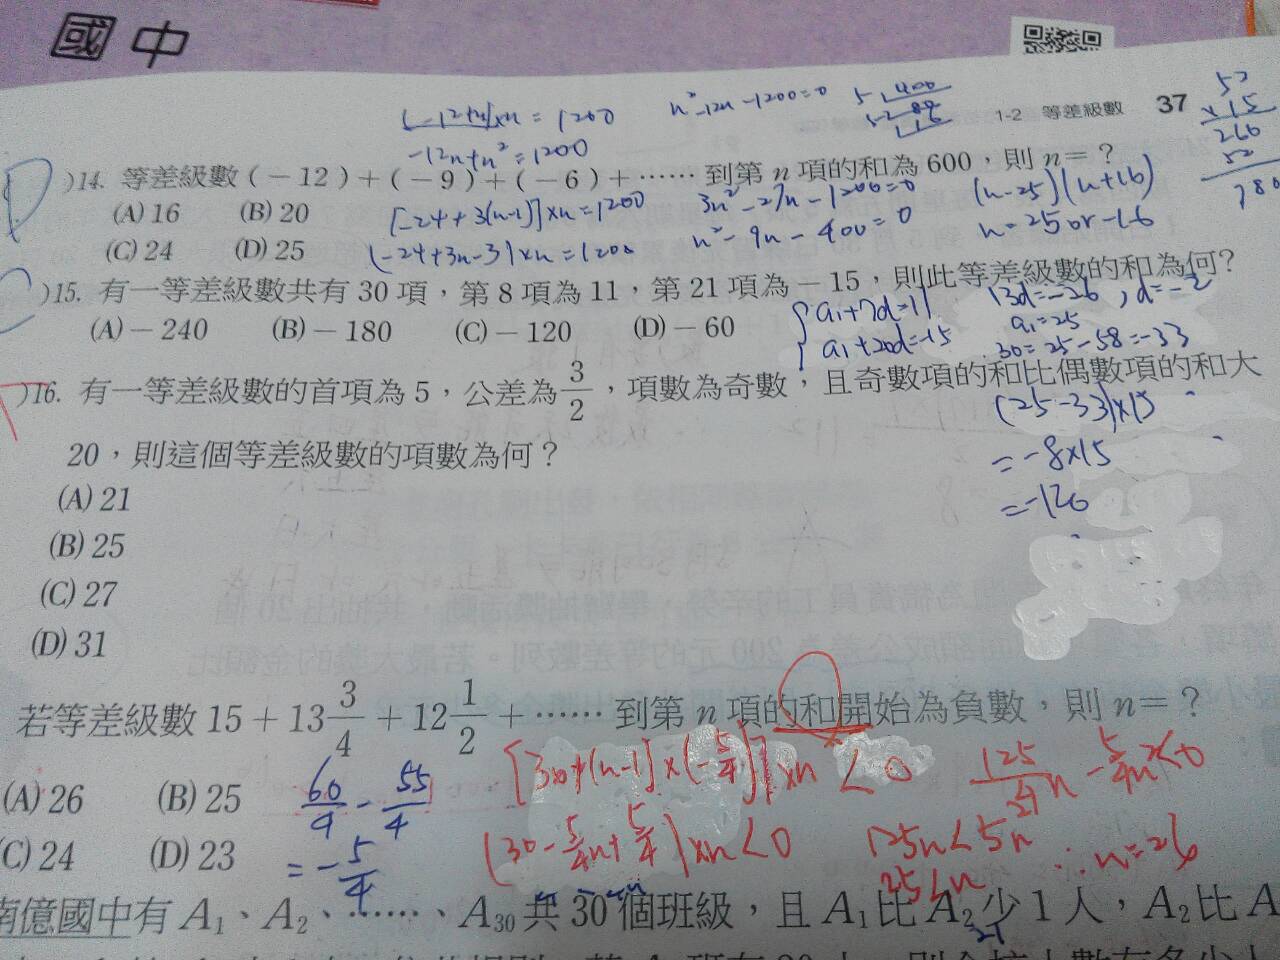 國中
1-2 等差級數 37
n²-12n-1200=0
-12n+n²=1200
)14. 等差級數(-12)+(-9)+(-6)+⋯⋯到第 n 項的和為 600,則 n=?
(A) 16 (B) 20
[-24+3(n-1)]×n=1200
3n²-27n-1200=0
(n-25)(n+16)
(C) 24 (D) 25
(-24+3n-3)×n=1200
n²-9n-400=0
n=25 or -16
)15. 有一等差級數共有 30 項,第 8 項為 11,第 21 項為-15,則此等差級數的和為何?
(A)-240 (B)-180 (C)-120 (D)-60
a₁+7d=11
a₁+20d=-15
13d=-26,d=-2
a₁=25
30=25-58=-33
(25-33)×15
=-8×15
=-120
)16. 有一等差級數的首項為 5,公差為 3/2,項數為奇數,且奇數項的和比偶數項的和大
20,則這個等差級數的項數為何?
(A) 21
(B) 25
(C) 27
(D) 31
若等差級數 15+13 3/4+12 1/2+⋯⋯到第 n 項的和開始為負數,則 n=?
(A) 26 (B) 25
(C) 24 (D) 23
60/4-55/4
=-5/4
[30+(n-1)×(-5/4)]×n<0
(30-5/4n+5/4)×n<0
125/4n-5/4n²<0
125n<5n²
25<n
∴n=26
南億國中有 A₁、A₂、⋯⋯、A₃₀ 共 30 個班級,且 A₁ 比 A₂ 少 1 人,A₂ 比 A